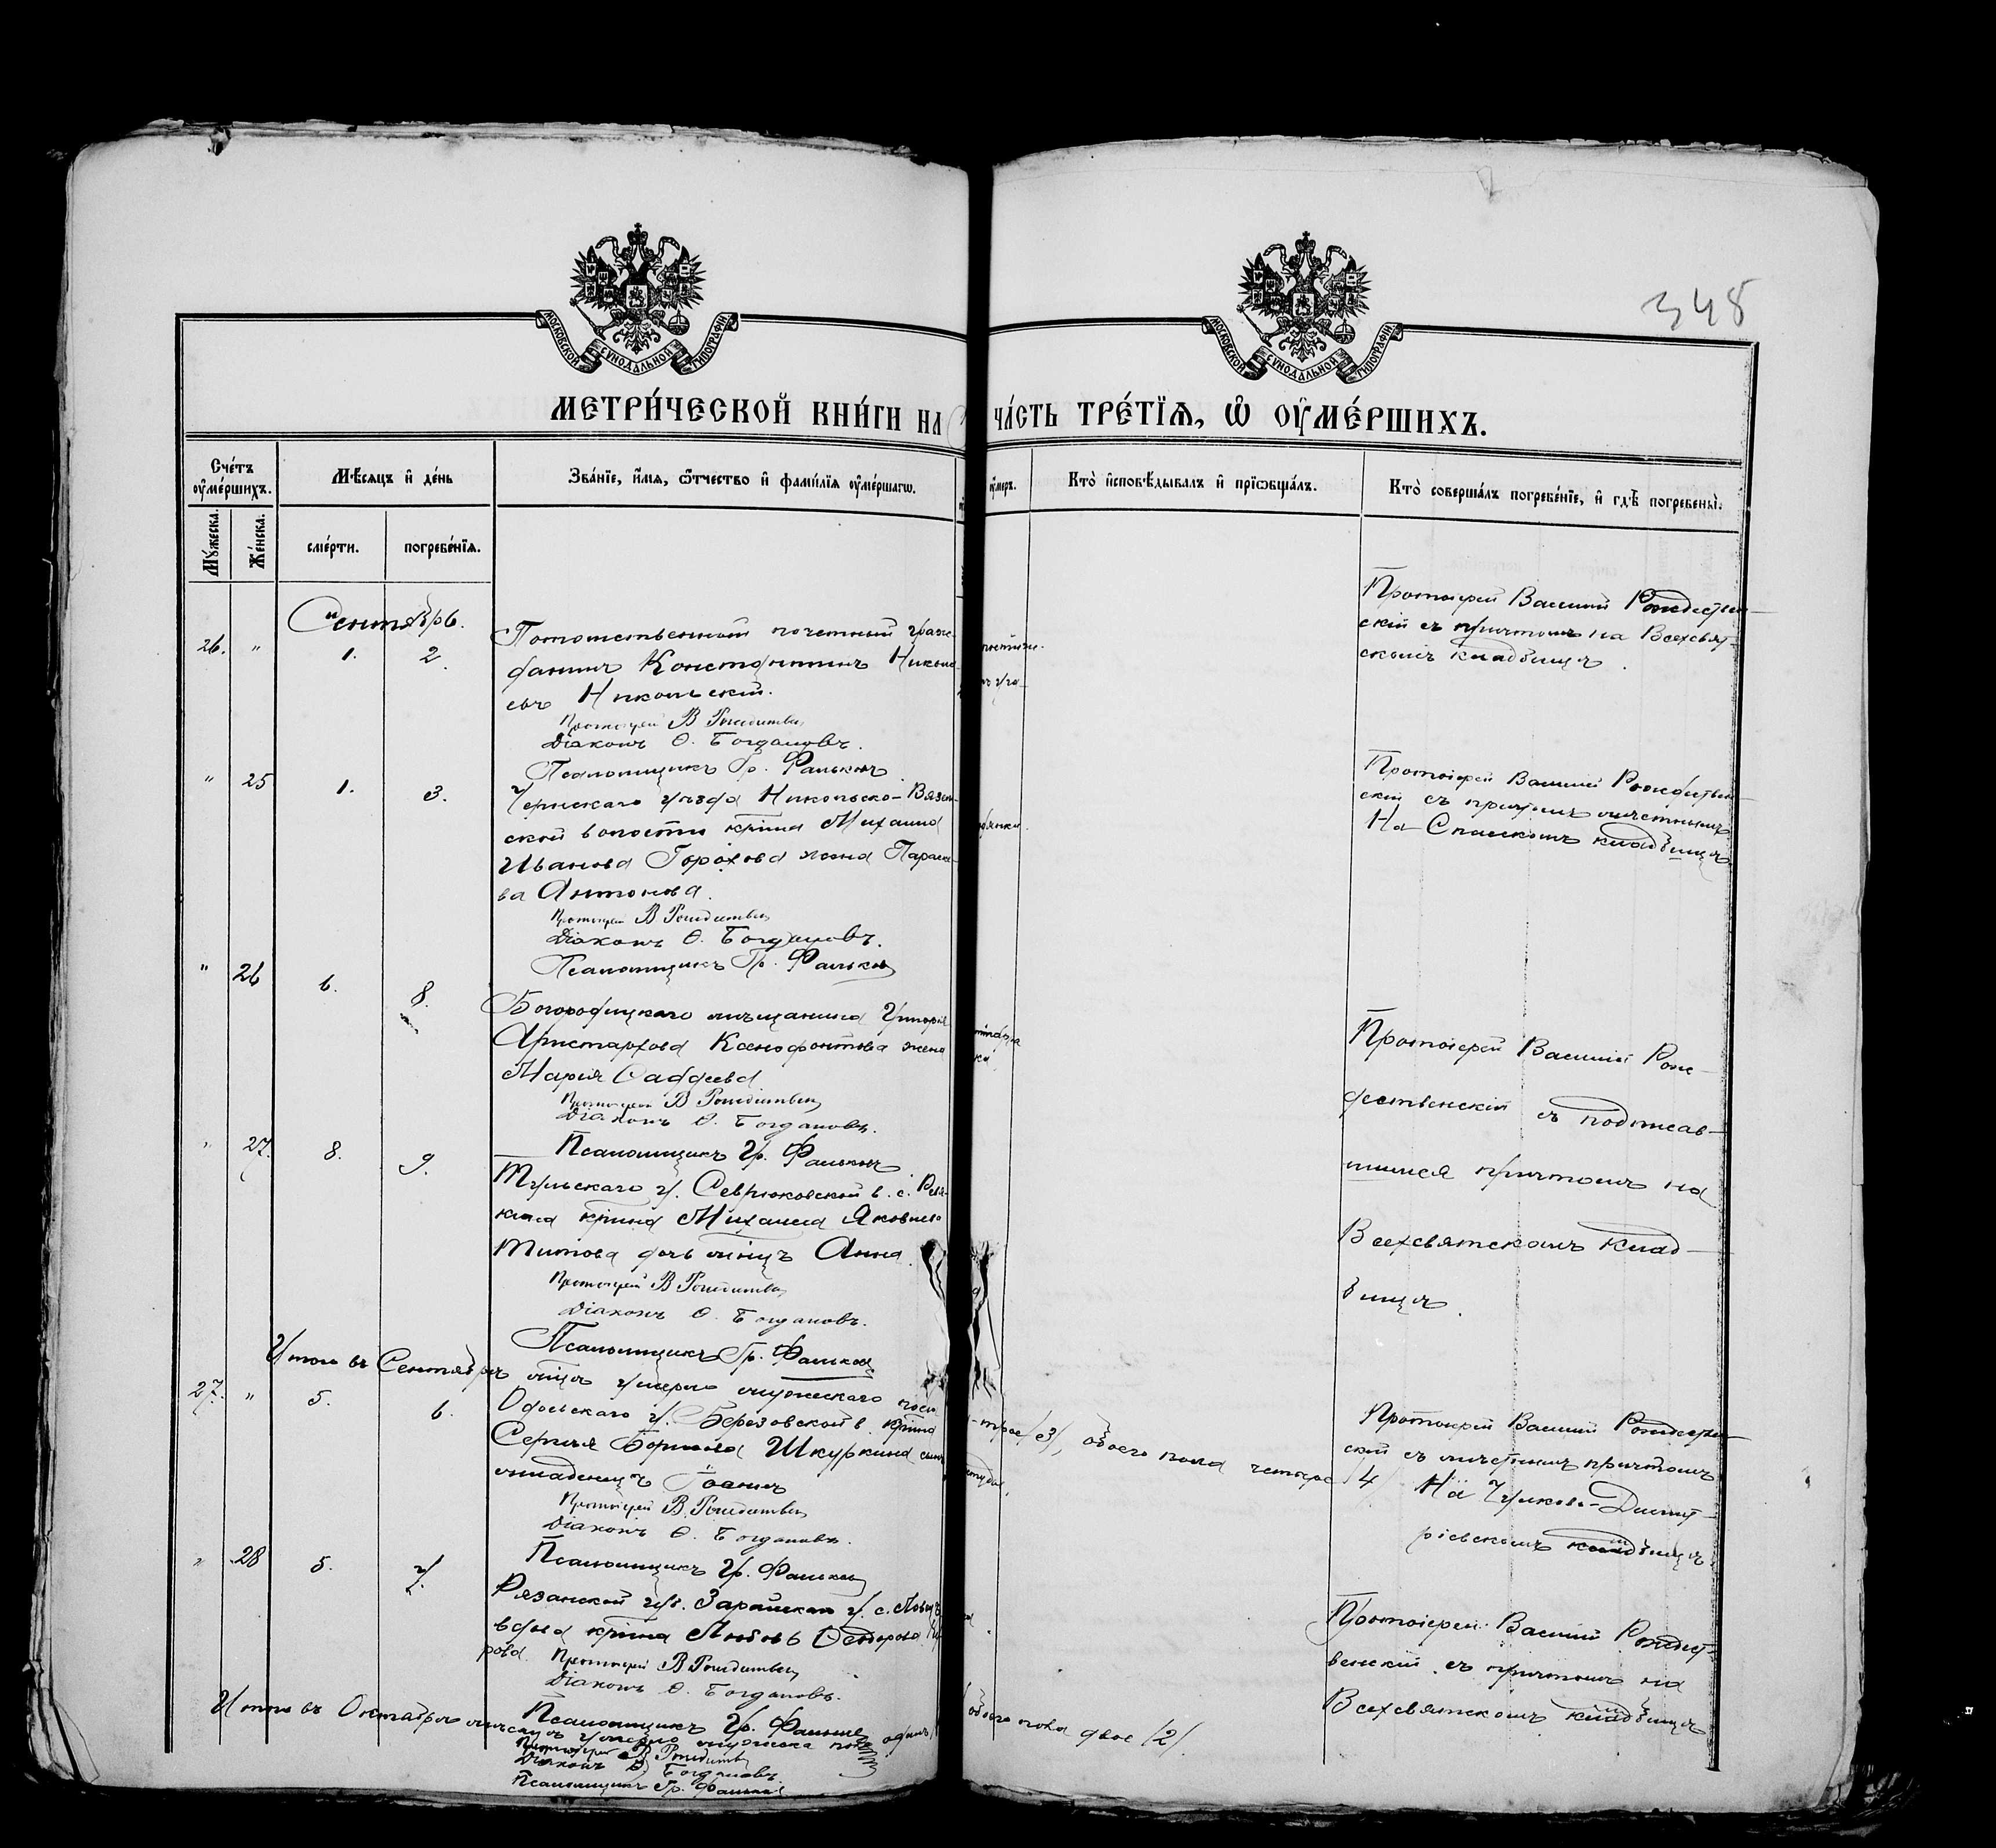 348
МОСКОВСКОЙ СУНОДАЛЬНОЙ ТИПОГРАФІИ
МОСКОВСКОЙ СУНОДАЛЬНОЙ ТИПОГРАФІИ
МЕТРИ́ЧЕСКОЙ КНИ́ГИ НА
ЧА́СТЬ ТРЕ́ТЇѦ, Ѡ ОУ҆МЕ́РШИХЪ.
Сче́тъ оу҆ме́ршихъ.
Мѣ́сяцъ и҆ де́нь
Зва́нїе, и҆́мѧ, ѻ҆́тчество и҆ фами́лїѧ оу҆ме́ршагѡ.
оу҆меръ.
Кто̀ и҆сповѣ́дывалъ и҆ прїѡбща́лъ.
Кто̀ соверша́лъ погребе́нїе, и҆ гдѣ̀ погребены̀.
Му́жеска.
Же́нска.
сме́рти.
погребе́нїѧ.
Сентябрь.
26. " 1. 2.
Потомственный почетный граж-
данинъ Константинъ Никола-
евъ Никольскій.
Протоіерей В Рождественскій
Діаконъ Ѳ. Богдановъ.
Псаломщикъ Гр. Фальков
Протоіерей Василій Рождествен-
скій съ причтомъ на Всехсвят-
скомъ кладбищѣ.
" 25 1. 3.
Чернскаго уѣзда Никольско-Вязем-
ской волости крѣна Михаила
Иванова Горохова жена Параске-
ва Антонова.
Протоіерей В Рождественскій
Діаконъ Ѳ. Богдановъ.
Псаломщикъ Гр. Фальков
Протоіерей Василій Рождествен-
скій съ причтомъ мѣстнымъ
На Спасскомъ кладбищѣ
" 26 6. 8.
Богородицкаго мѣщанина Григорія
Аристархова Ксенофонтова жена
Марія Ѳаддеева
Протоіерей В Рождественскій
Діаконъ Ѳ. Богдановъ.
Псаломщикъ Гр. Фальков
Протоіерей Василій Рож-
дественскій съ подписав-
шимся причтомъ на
Всехсвятскомъ клад-
бищѣ.
" 27. 8. 9.
Тульскаго у. Севрюковской в. с. Ревя-
кина крѣна Михаила Яковлева
Титова дочь млнцъ Анна.
Протоіерей В Рождественскій
Діаконъ Ѳ. Богдановъ.
Псаломщикъ Гр. Фальков
Итого въ Сентябрѣ мцѣ умерло мужескаго пола
трое /3/, обоего пола четыре /4/
27. " 5. 6.
Одоевскаго у. Березовской в. крѣна
Сергѣя Борисова Шкуркина сынъ
младенецъ Іоаннъ
Протоіерей В Рождественскій
Діаконъ Ѳ. Богдановъ.
Псаломщикъ Гр. Фальков
Протоіерей Василій Рождествен-
скій съ мѣстнымъ причтомъ
На Чулково-Димит-
ріевскомъ кладбищѣ
" 28 5. 7.
Рязанской губ. Зарайскаго у. с.
вдова крѣнка Любовь Ѳедорова
рова.
Протоіерей В Рождественскій
Діаконъ Ѳ. Богдановъ.
Псаломщикъ Гр. Фальков
Протоіерей Василій Рождест-
венскій съ причтомъ на
Всехсвятскомъ кладбищѣ
Итого въ Октябрѣ мѣсяцѣ умерло мужеска пола одинъ,
обоего пола двое /2/.
Протоіерей В Рождественскій
Діаконъ Ѳ. Богдановъ.
Псаломщикъ Гр. Фальков